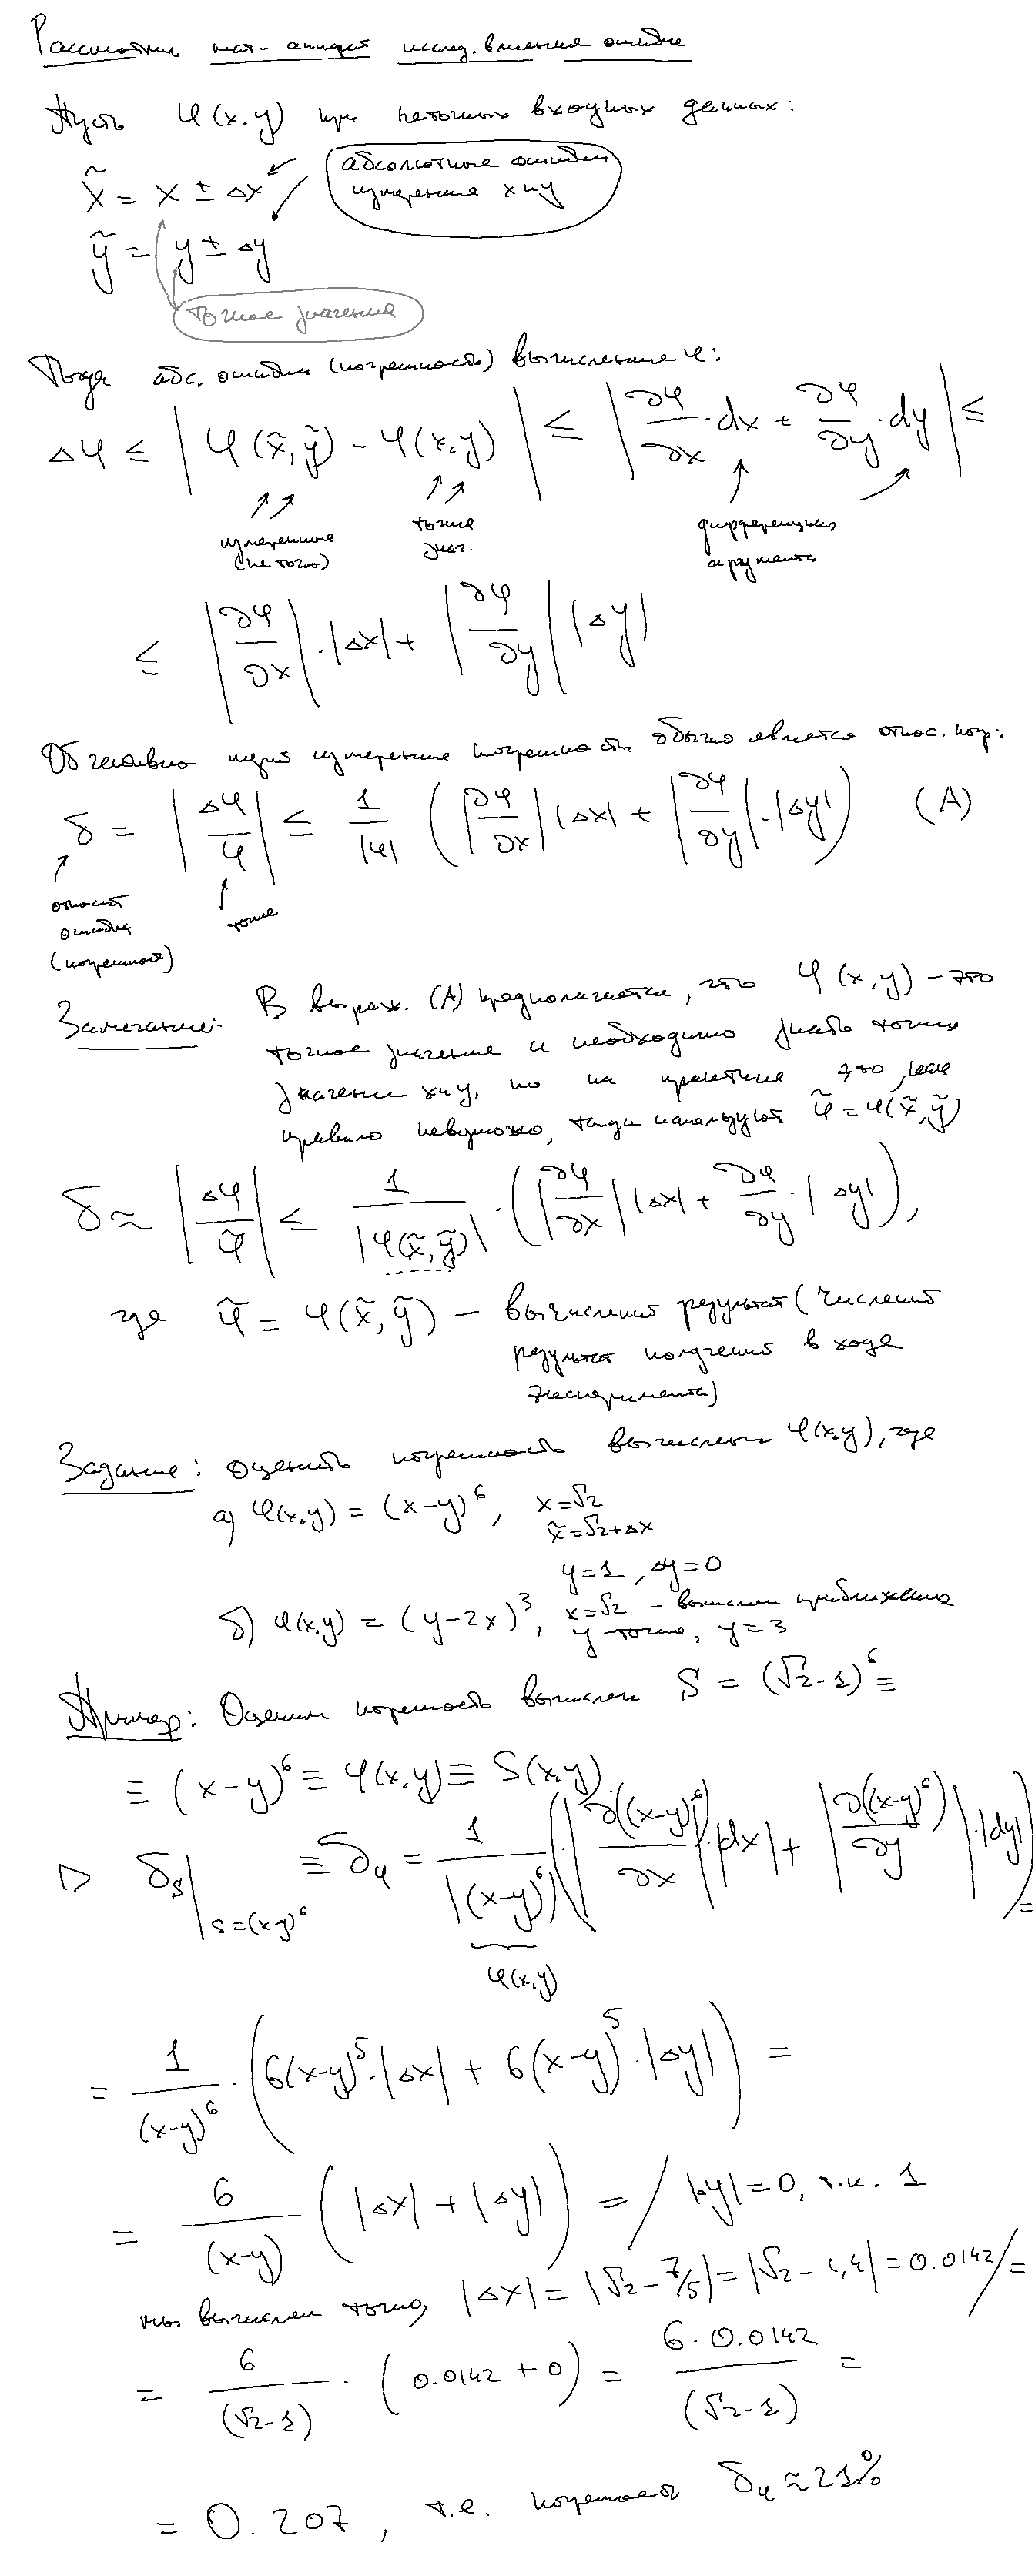 Рассмотрим мат-аппарат исслед. влияния ошибок
Пусть φ(x,y) при неточных входных данных:
x̃ = x ± Δx
абсолютные ошибки
измерения x и y
ỹ = y ± Δy
точное значение
Тогда абс. ошибка (погрешность) вычисления φ:
Δφ ≤ | φ(x̃,ỹ) - φ(x,y) | ≤ | ∂φ/∂x · dx + ∂φ/∂y · dy | ≤
измеренные
(не точно)
точные
знач.
дифференциал
аргумента
≤ |∂φ/∂x| · |Δx| + |∂φ/∂y| |Δy|
измерения погрешности обычно является относ. погр.:
δ = |Δφ/φ| ≤ 1/|φ| ( |∂φ/∂x| |Δx| + |∂φ/∂y| · |Δy| ) (A)
относит
ошибка
(погрешность)
точное
Замечание: В выраж. (A) предполагается, что φ(x,y) - это
точное значение и необходимо знать точные
значения x и y, но на практике это, как
правило невозможно, тогда используют φ̃ = φ(x̃,ỹ)
δ ≈ |Δφ/φ̃| ≤ 1/|φ(x̃,ỹ)| · ( |∂φ/∂x| |Δx| + ∂φ/∂y · |Δy| ),
где φ̃ = φ(x̃,ỹ) - вычислений результат (численный
результат полученный в ходе
эксперимента)
Задание: оценить погрешность вычислен φ(x,y), где
а) φ(x,y) = (x-y)⁶, x=√2
x̃=√2+Δx
y=1, Δy=0
б) φ(x,y) = (y-2x)³, x=√2 - вычислен приближенно
y-точно, y=3
Пример: Оценим погрешность вычислен S = (√2-1)⁶ ≡
≡ (x-y)⁶ ≡ φ(x,y) ≡ S(x,y)
▷ δ_S |_{S=(x-y)⁶} ≡ δ_φ = 1/|(x-y)⁶| ( |∂((x-y)⁶)/∂x| · |dx| + |∂((x-y)⁶)/∂y| · |dy| ) =
φ(x,y)
= 1/(x-y)⁶ · ( 6(x-y)⁵ · |Δx| + 6(x-y)⁵ · |Δy| ) =
= 6/(x-y) ( |Δx| + |Δy| ) = / |Δy|=0, т.к. 1
мы вычислен точно, |Δx| = |√2 - 7/5| = |√2 - 1,4| = 0.0142 / =
= 6/(√2-1) · ( 0.0142 + 0 ) = 6·0.0142/(√2-1) =
= 0.207, т.е. погрешност δ_φ ≈ 21%